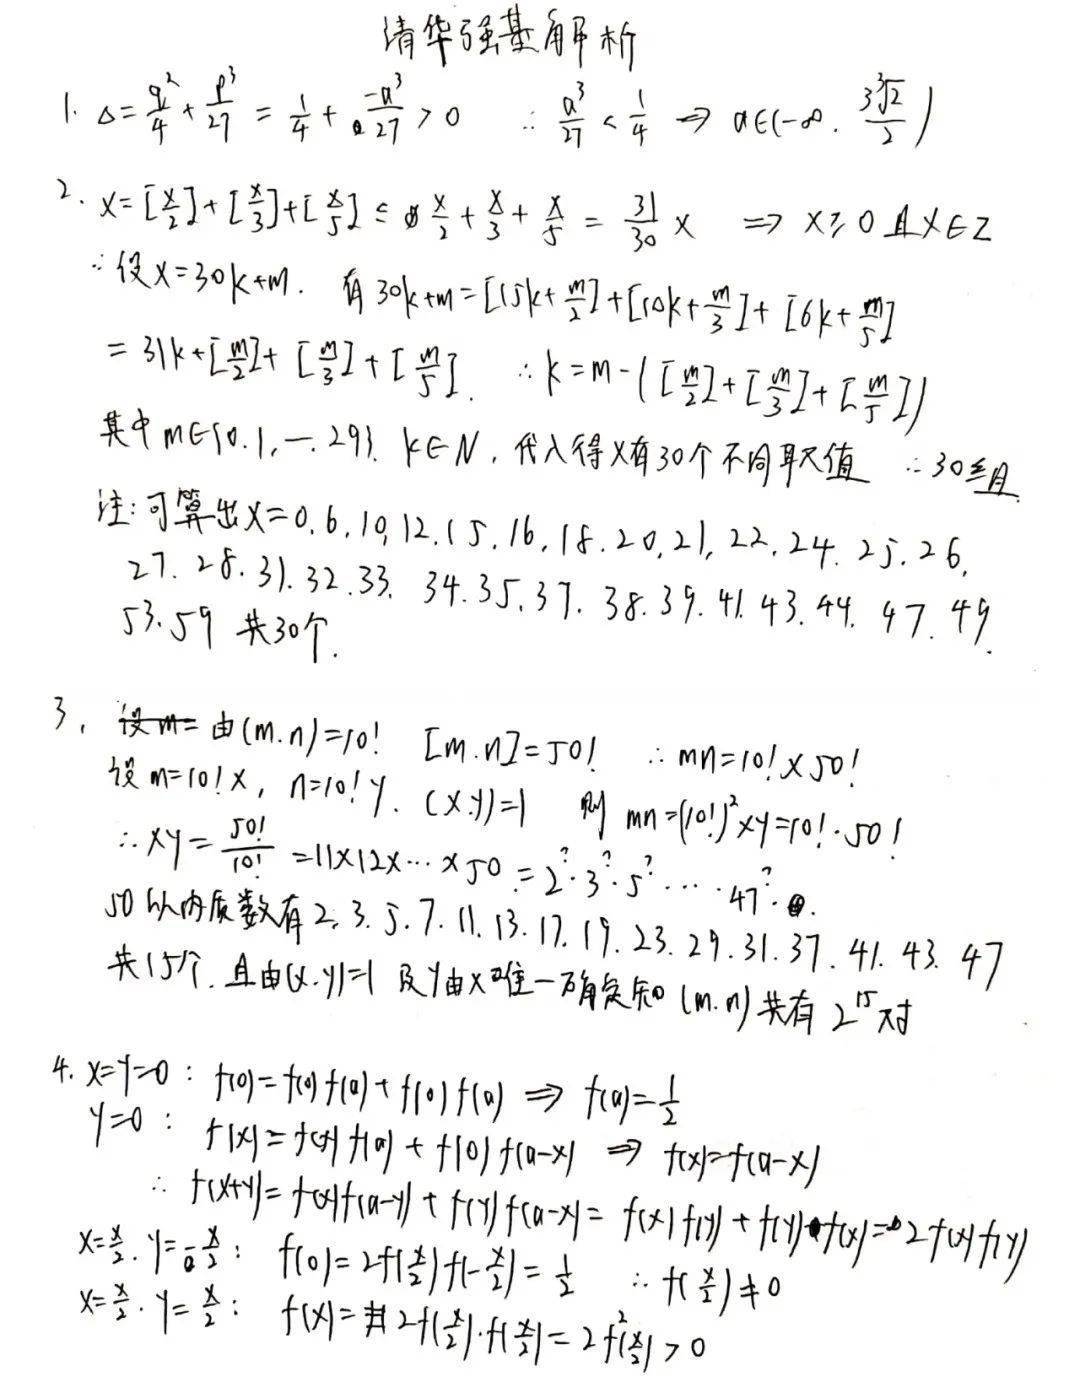 清华强基解析
1. Δ=q²/4+p³/27=1/4+-a³/27>0 ∴a³/27<1/4 ⇒ a∈(-∞.3∛2/2)
2. x=[x/2]+[x/3]+[x/5]≤x/2+x/3+x/5=31/30x ⇒ x≥0且x∈Z
∴设x=30k+m. 有30k+m=[15k+m/2]+[10k+m/3]+[6k+m/5]
=31k+[m/2]+[m/3]+[m/5]. ∴k=m-([m/2]+[m/3]+[m/5])
其中m∈{0.1,—.29}. k∈N,代入得x有30个不同取值 ∴30组
注:可算出x=0.6.10,12.15.16.18.20.21,22.24.25.26.
27.28.31.32.33.34.35.37.38.39.41.43.44.47.49.
53.59 共30个.
3. 设m=由(m.n)=10! [m.n]=50! ∴mn=10!×50!
设m=10!x, n=10!y. (x.y)=1 则mn=(10!)²xy=10!·50!
∴xy=50!/10!=11×12×…×50=2^?·3^?·5^?……47^?.
50以内质数有2.3.5.7.11.13.17.19.23.29.31.37.41.43.47
共15个.且由(x.y)=1及y由x唯一确定知(m.n)共有2¹⁵对
4. x=y=0: f(0)=f(0)f(a)+f(0)f(a) ⇒ f(a)=1/2
y=0: f(x)=f(x)f(a)+f(0)f(a-x) ⇒ f(x)=f(a-x)
∴f(x+y)=f(x)f(a-y)+f(y)f(a-x)=f(x)f(y)+f(y)f(x)=2f(x)f(y)
x=x/2.y=-x/2: f(0)=2f(x/2)f(-x/2)=1/2 ∴f(x/2)≠0
x=x/2.y=x/2: f(x)=2f(x/2)·f(x/2)=2f²(x/2)>0